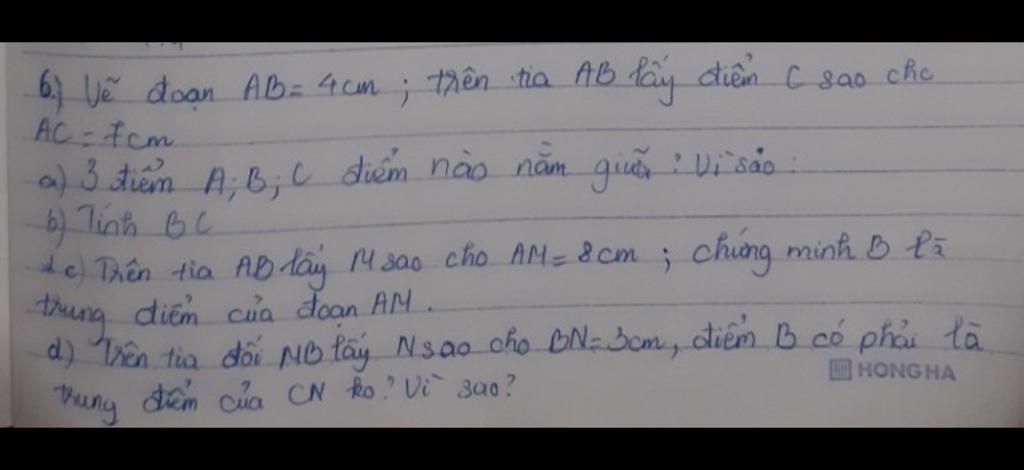 6.) Vẽ đoạn AB = 4cm ; trên tia AB lấy điểm C sao cho
AC = 7cm
a) 3 điểm A; B; C điểm nào nằm giữa? Vì sao?
b) Tính BC
c) Trên tia AB lấy M sao cho AM = 8cm ; chứng minh B là
trung điểm của đoạn AM.
d) Trên tia đối MB lấy N sao cho BN = 3cm, điểm B có phải là
trung điểm của CN ko? Vì sao?
HONG HA